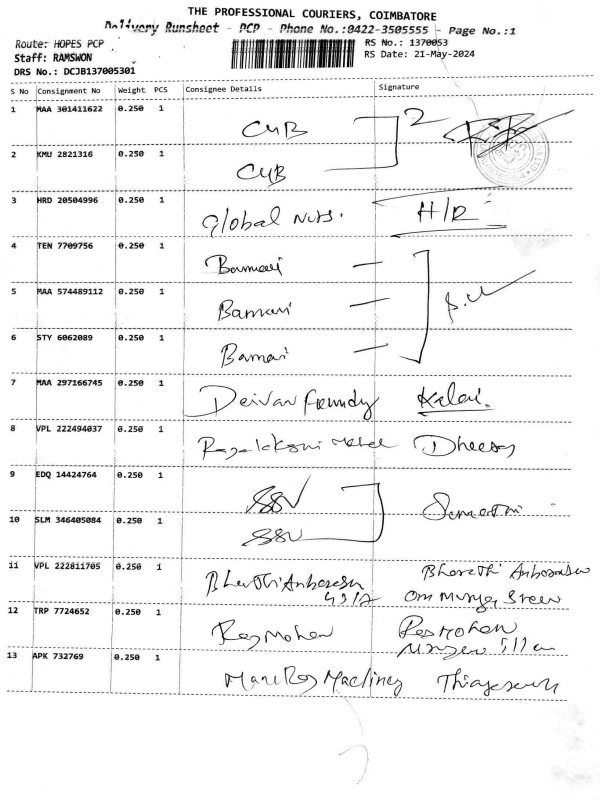 THE PROFESSIONAL COURIERS, COIMBATORE
Delivery Runsheet - PCP - Phone No.:0422-3505555 - Page No.:1
Route: HOPES PCP
RS No.: 1370053
Staff: RAMSWON
RS Date: 21-May-2024
DRS No.: DCJB137005301
S No Consignment No Weight PCS Consignee Details Signature
1 MAA 301411622 0.250 1 CUB 2
2 KMU 2821316 0.250 1 CUB
3 HRD 20504996 0.250 1 Global Nuts. H/R
4 TEN 7709756 0.250 1 Bamani
5 MAA 574489112 0.250 1 Bamani
6 STY 6062089 0.250 1 Bamani
7 MAA 297166745 0.250 1 Deivan Foundry Kalai.
8 VPL 222494037 0.250 1
9 EDQ 14424764 0.250 1 SSV
10 SLM 346405084 0.250 1 SSV
11 VPL 222811705 0.250 1 Bharathi Anbarasu
12 TRP 7724652 0.250 1 Raj Mohan Raj Mohan
13 APK 732769 0.250 1